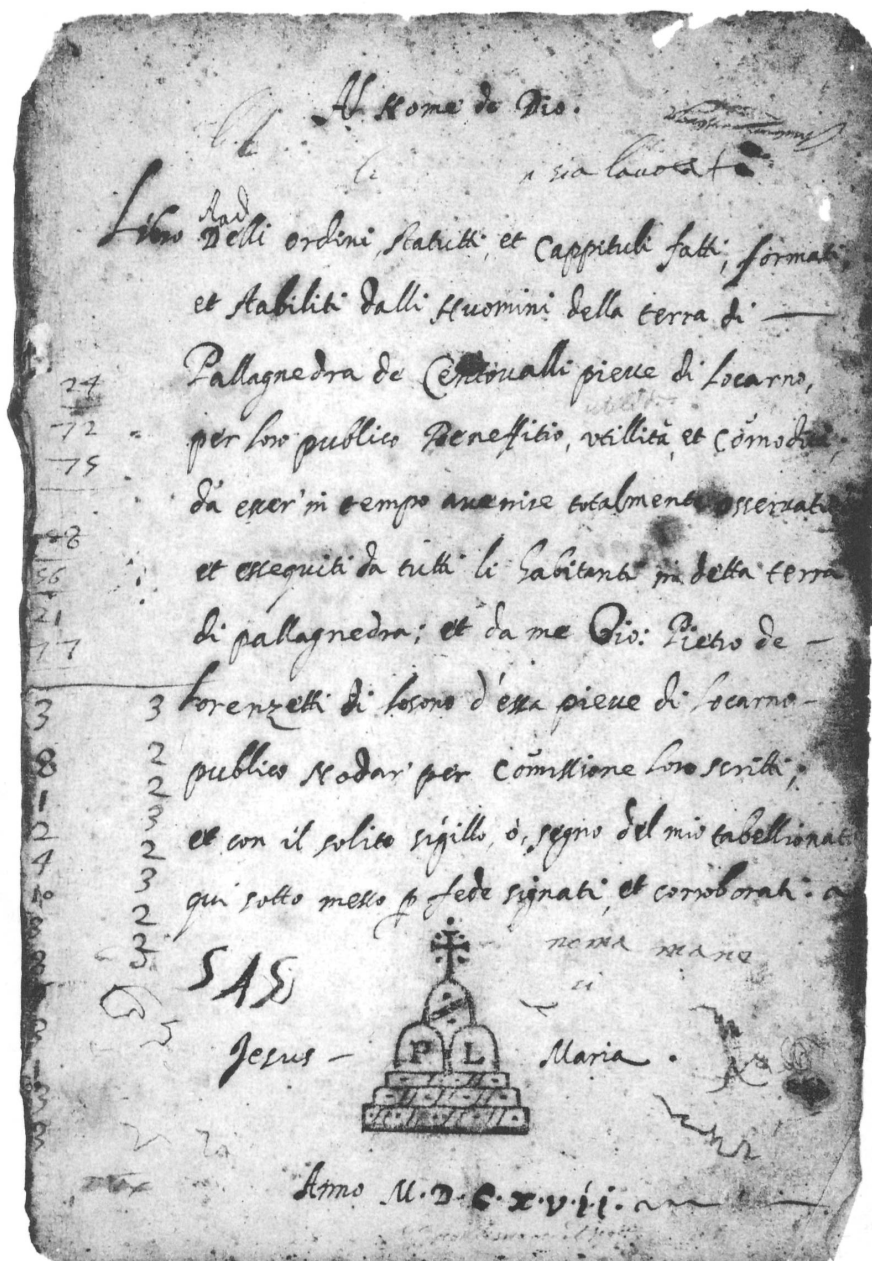 Al Nome de Dio.
n sia lauora
Libro Delli ordini, statutti, et Cappituli fatti, formati,
et stabiliti dalli Huomini della terra di —
Pallagnedra de Centoualli pieue di Locarno,
per loro publico Beneffitio, vtillità, et Cõmodità,
dà esser' in tempo auenire totalmente osseruati
et essequiti da tutti li habitanti in detta terra
di pallagnedra; et da me Gio: Pietro de —
Lorenzetti di Losono d'essa pieue di Locarno —
publico Nodar' per Cõmissione loro scritti;
et con il solito sigillo, ò, segno del mio tabellionat
qui sotto messo p fede signati, et corroborati. a
noma mano
SAS
Jesus — P L Maria.
Anno M.D.C.X.V.i.i.
24
72
75
56
21
77
3 3
8 2
1 2
2 3
4 2
3
2